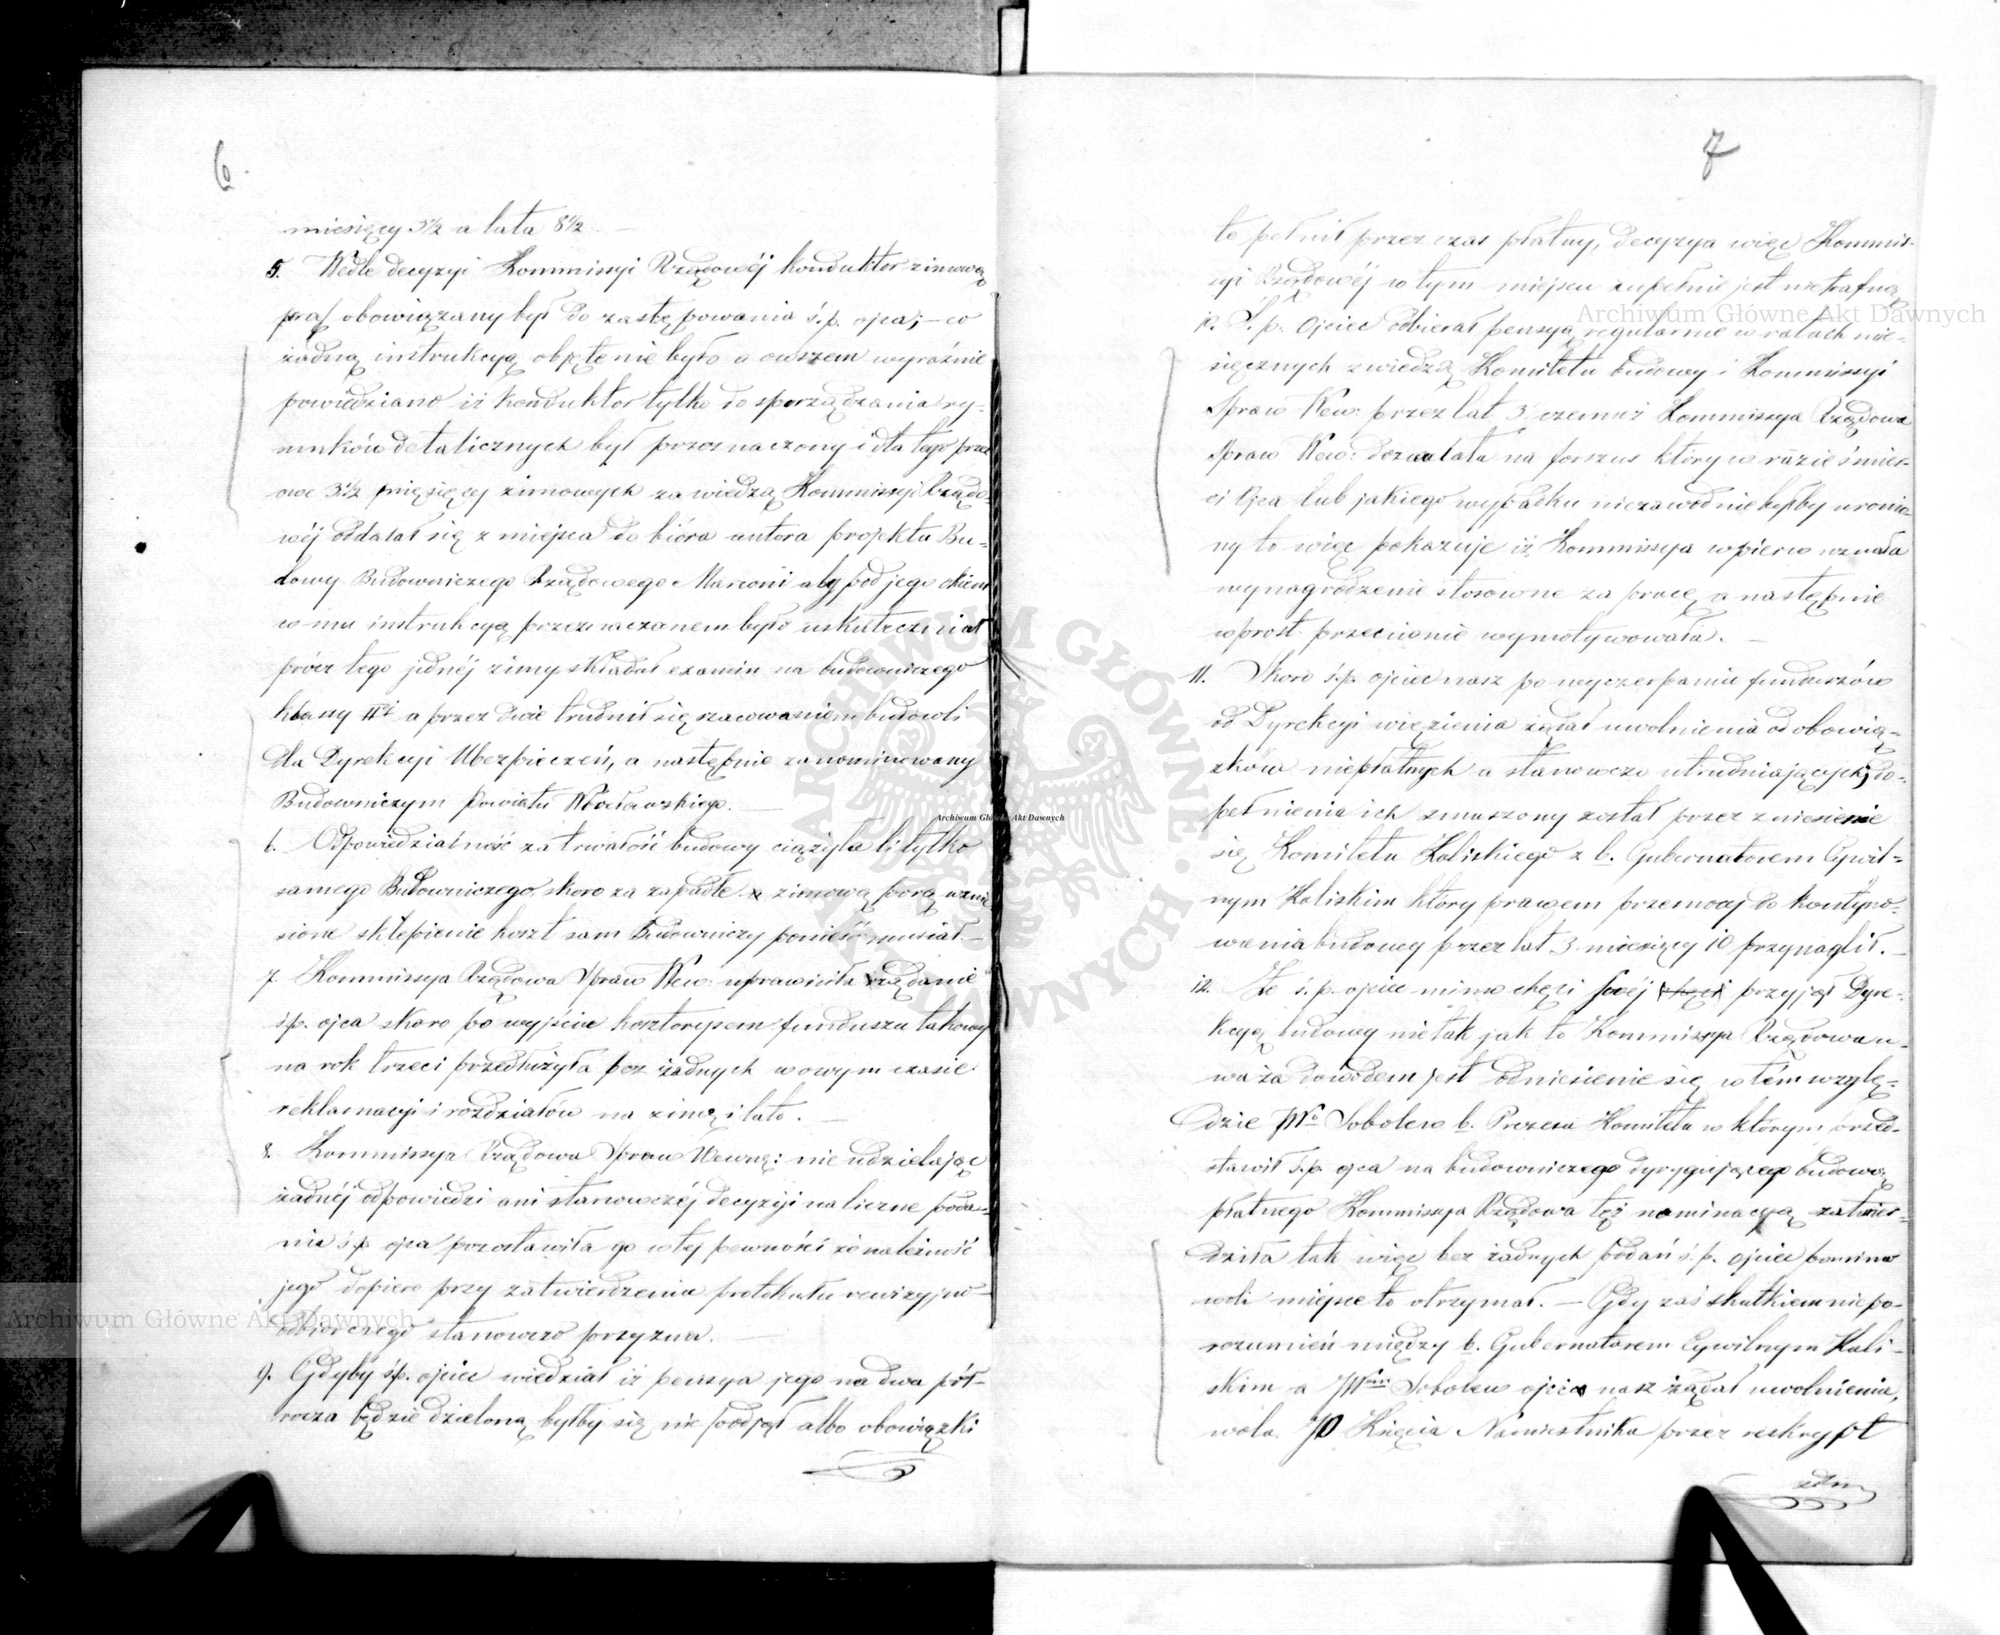 6.
miesięcy 3½ a lata 8½. —
5. Wedle decyzyi Kommissyi Rządowéj konduktor zimową
porą obowiązany był do zastępowania ś.p. ojca; — co
żadną instrukcyą objęte nie było a owszem wyraźnie
powiedziano iż konduktor tylko do sporządzania ry-
sunków detalicznych był przeznaczony i dla tego przez
owe 3½ miesięcy zimowych za wiedzą Kommissyi Rządo-
wéj oddalał się z miejsca do bióra autora projektu Bu-
dowy Budowniczego Rządowego Marconi aby pod jego okiem
co mu instrukcyą przeznaczonem było uskuteczniał
prócz tego jednéj zimy składał examin na budowniczego
klassy IIéj a przez dwie trudnił się szacowaniem budowli
dla Dyrekcyi Ubezpieczeń, a następnie zanominowany
Budowniczym Powiatu Włocławskiego. —
6. Odpowiedzialność za trwałość budowy ciążyła li tylko
samego Budowniczego, skoro za zapadłe zimową porą wznie-
sione sklepienie koszt sam Budowniczy ponieść musiał. —
7. Kommissya Rządowa Spraw Wew: uprawniła żądanie
ś.p. ojca skoro po wyjściu kosztorysem funduszu takowy
na rok trzeci przedłużyła bez żadnych w owym czasie
reklamacyi i rozdziałów na zimę i lato. —
8. Kommissya Rządowa Spraw Wewnę: nie udzielając
żadnéj odpowiedzi ani stanowczéj decyzyi na liczne poda-
nia ś.p. ojca pozostawiła go w téj pewności że należność
jego dopiero przy zatwierdzeniu protokułu rewizyjno-
odbiorczego stanowczo przyzna. —
9. Gdyby ś.p. ojciec wiedział iż pensya jego na dwa pół-
rocza będzie dzieloną byłby się nie podjął albo obowiązki
7
te pełnił przez czas płatny, decyzya więc Kommis-
syi Rządowéj w tym miejscu zupełnie jest nietrafną
10. Ś.p. Ojciec odbierał pensyą regularnie w ratach mie-
sięcznych z wiedzą Komitetu budowy i Kommissyi
Spraw Wew: przez lat 3, czemuż Kommissya Rządowa
Spraw Wew: dozwalała na forszus który w razie śmier-
ci Ojca lub jakiego wypadku niezawodnie byłby uronio-
ny to więc pokazuje iż Kommissya wpierw uznała
wynagrodzenie stosowne za pracę a następnie
wprost przeciwnie wymotywowała. —
11. Skoro ś.p. ojciec nasz po wyczerpaniu funduszów
od Dyrekcyi więzienia żądał uwolnienia od obowią-
zków niepłatnych a stanowczo utrudniających, do-
pełnienia ich zmuszony został przez zniesienie
się Komitetu Kaliskiego z b. Gubernatorem Cywil-
nym Kaliskim który prawem przemocy do kontyno-
wania budowy przez lat 3 miesięcy 10 przynaglił. —
12. Że ś.p. ojciec mimo chęci swéj przyjął Dyre-
kcyą budowy nie tak jak to Kommissya Rządowa u-
waża dowodem jest odniesienie się w tém wzglę-
dzie JWo Sobolew b. Prezesa Komitetu w którym przed-
stawił ś.p. ojca na budowniczego dyrygującego budową
płatnego Kommissya Rządowa tęż nominacyą zatwier-
dziła tak więc bez żadnych podań ś.p. Ojciec pomimo
woli miejsce to otrzymał. — Gdy zaś skutkiem niepo-
rozumień między b. Gubernatorem Cywilnym Kali-
skim a JWym Sobolew ojciec nasz żądał uwolnienia,
wola JO Księcia Namiestnika przez reskrypt
Archiwum Główne Akt Dawnych
Archiwum Główne Akt Dawnych
Archiwum Główne Akt Dawnych
ARCHIWUM GŁÓWNE AKT DAWNYCH